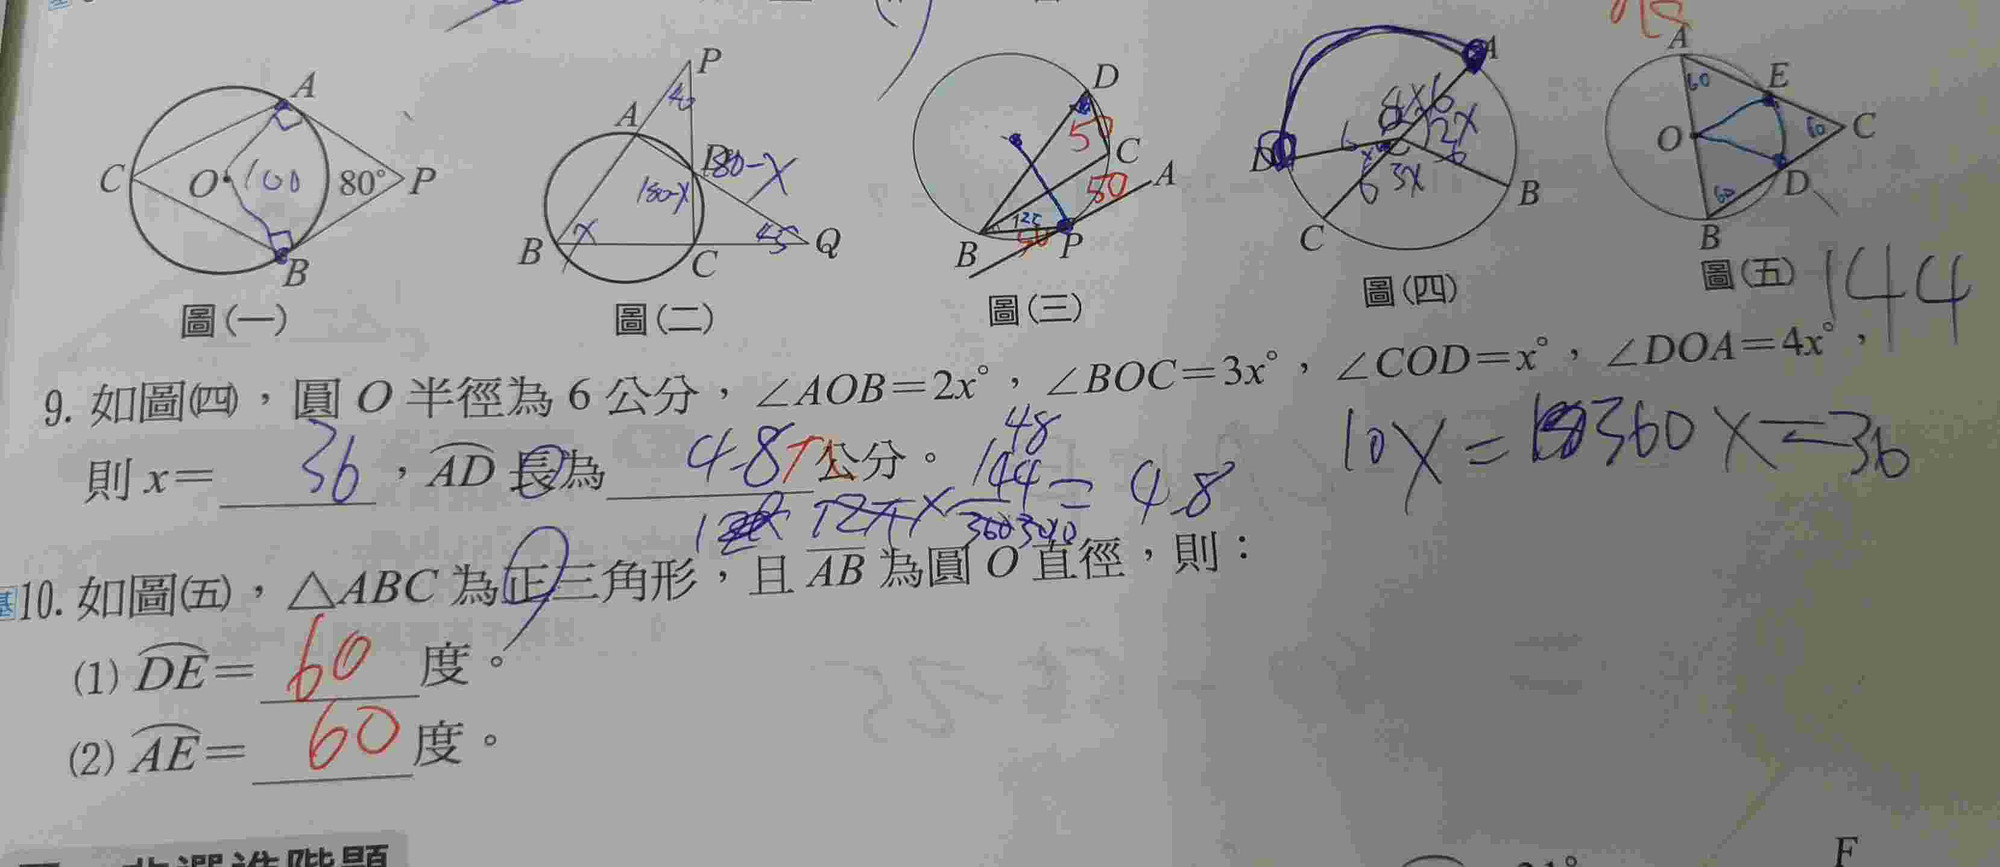 A
C
O
100
80°
P
B
圖(一)
P
A
180-x
180-x
B
x
45
Q
C
圖(二)
D
50
C
50
A
B
P
圖(三)
A
2x
3x
B
C
圖(四)
A
60
E
O
60
C
60
D
B
圖(五)
144
9. 如圖(四)，圓 O 半徑為 6 公分，∠AOB=2x°，∠BOC=3x°，∠COD=x°，∠DOA=4x°，
則 x= 36 ，AD 長為 4.8π 公分。
48
12π× 144/360 = 4.8
10x = 360 x = 36
10. 如圖(五)，△ABC 為正三角形，且 AB 為圓 O 直徑，則：
(1) DE= 60 度。
(2) AE= 60 度。
F